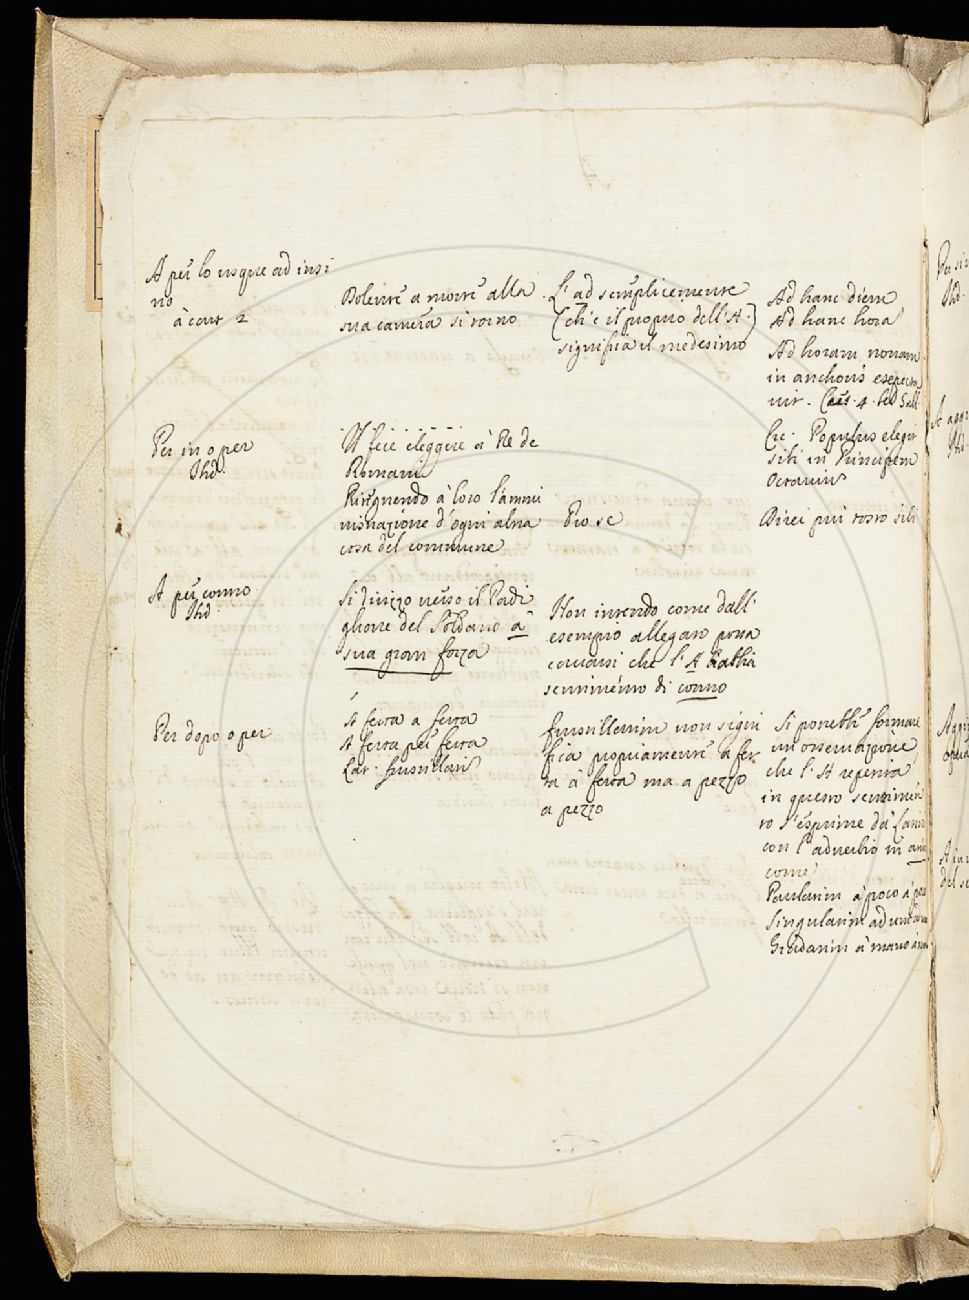 A per lo usque ad insi
no
à cart 2
Dolente a morte alla
sua camera si torno
L'ad semplicemente
(ch'è il proprio dell'A.)
significa il medesimo
Ad hanc diem
Ad hanc hora
Ad horam nonam
in anchoris expecta
vit. Caes. 4. bel Gall
Per in o per
Ibd.
Il fece eleggere à Re de
Romani
Ritenendo à loro l'ammi
nistrazione d'ogni altra
cosa del commune
Pro se
Cic. Populus elegit
sibi in Principem
Octavium
Direi piu tosto sibi
A per contro
Ibd.
Si drizzo verso il Padi
glione del Soldano à
sua gran forza
Non intendo come dall'
esempio allegato possa
cavarsi che l'A habbia
sentimento di contro
Per dopo o per
A fetta a fetta
A fetta per fetta
Lat. frustillatim
frustillatim non signi
fica propriamente à fet
ta à fetta ma a pezzo
a pezzo
Si potrebbe formare
un osservazione
che l'A repetita
in questo sentimen
to s'esprime da Latini
con l'adverbio in
come
Paulatim à poco à poco
Singulatim ad uno
à mano à